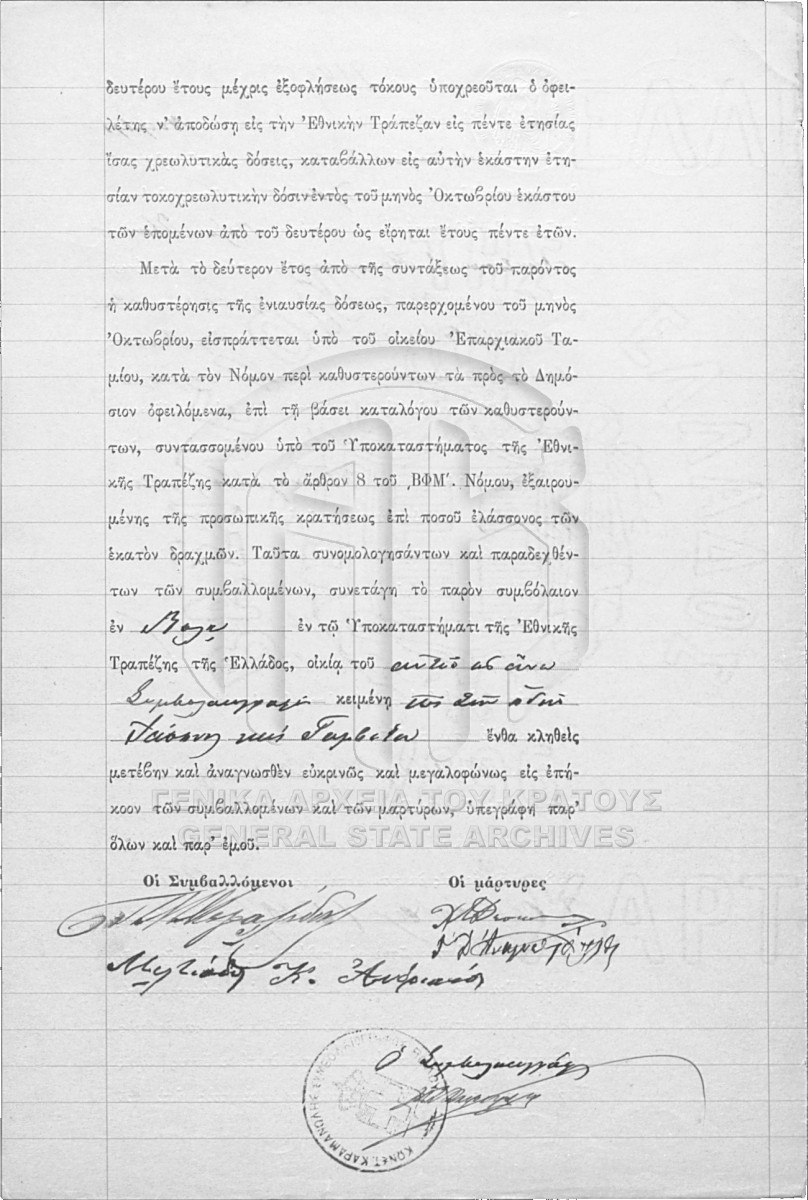 δευτέρου ἔτους μέχρις ἐξοφλήσεως τόκους ὑποχρεοῦται ὁ ὀφει-
λέτης ν' ἀποδώσῃ εἰς τὴν Ἐθνικὴν Τράπεζαν εἰς πέντε ἐτησίας
ἴσας χρεωλυτικὰς δόσεις, καταβάλλων εἰς αὐτὴν ἑκάστην ἐτη-
σίαν τοκοχρεωλυτικὴν δόσιν ἐντὸς τοῦ μηνὸς Ὀκτωβρίου ἑκάστου
τῶν ἑπομένων ἀπὸ τοῦ δευτέρου ὡς εἴρηται ἔτους πέντε ἐτῶν.
Μετὰ τὸ δεύτερον ἔτος ἀπὸ τῆς συντάξεως τοῦ παρόντος
ἡ καθυστέρησις τῆς ἐνιαυσίας δόσεως, παρερχομένου τοῦ μηνὸς
Ὀκτωβρίου, εἰσπράττεται ὑπὸ τοῦ οἰκείου Ἐπαρχιακοῦ Τα-
μίου, κατὰ τὸν Νόμον περὶ καθυστερούντων τὰ πρὸς τὸ Δημό-
σιον ὀφειλόμενα, ἐπὶ τῇ βάσει καταλόγου τῶν καθυστερούν-
των, συντασσομένου ὑπὸ τοῦ Ὑποκαταστήματος τῆς Ἐθνι-
κῆς Τραπέζης κατὰ τὸ ἄρθρον 8 τοῦ ͵ΒΦΜ΄. Νόμου, ἐξαιρου-
μένης τῆς προσωπικῆς κρατήσεως ἐπὶ ποσοῦ ἐλάσσονος τῶν
ἑκατὸν δραχμῶν. Ταῦτα συνομολογησάντων καὶ παραδεχθέν-
των τῶν συμβαλλομένων, συνετάγη τὸ παρὸν συμβόλαιον
ἐν Βόλῳ ἐν τῷ Ὑποκαταστήματι τῆς Ἐθνικῆς
Τραπέζης τῆς Ἑλλάδος, οἰκίᾳ τοῦ
Συμβολαιογράφου κειμένῃ
Ἰάσονος καὶ Γαμβέτα ἔνθα κληθεὶς
μετέβην καὶ ἀναγνωσθὲν εὐκρινῶς καὶ μεγαλοφώνως εἰς ἐπή-
κοον τῶν συμβαλλομένων καὶ τῶν μαρτύρων, ὑπεγράφη παρ'
ὅλων καὶ παρ' ἐμοῦ.
ΓΕΝΙΚΑ ΑΡΧΕΙΑ ΤΟΥ ΚΡΑΤΟΥΣ
GENERAL STATE ARCHIVES
Οἱ Συμβαλλόμενοι Οἱ μάρτυρες
Μιλτιάδης Κ.
Ὁ Συμβολαιογράφος
ΚΩΝΣΤ. ΚΑΡΑΜΑΝΩΛΗΣ